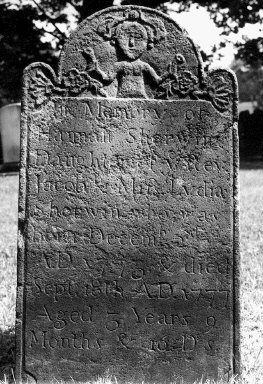 In Memory of
Hannah Sherwin
Daughter of ye Rev
Jacob & Mrs Lydia
Sherwin who was
born Decem
AD 1773 & died
Sept 18th AD 1777
Aged 3 Years 9
Months & 16 Ds